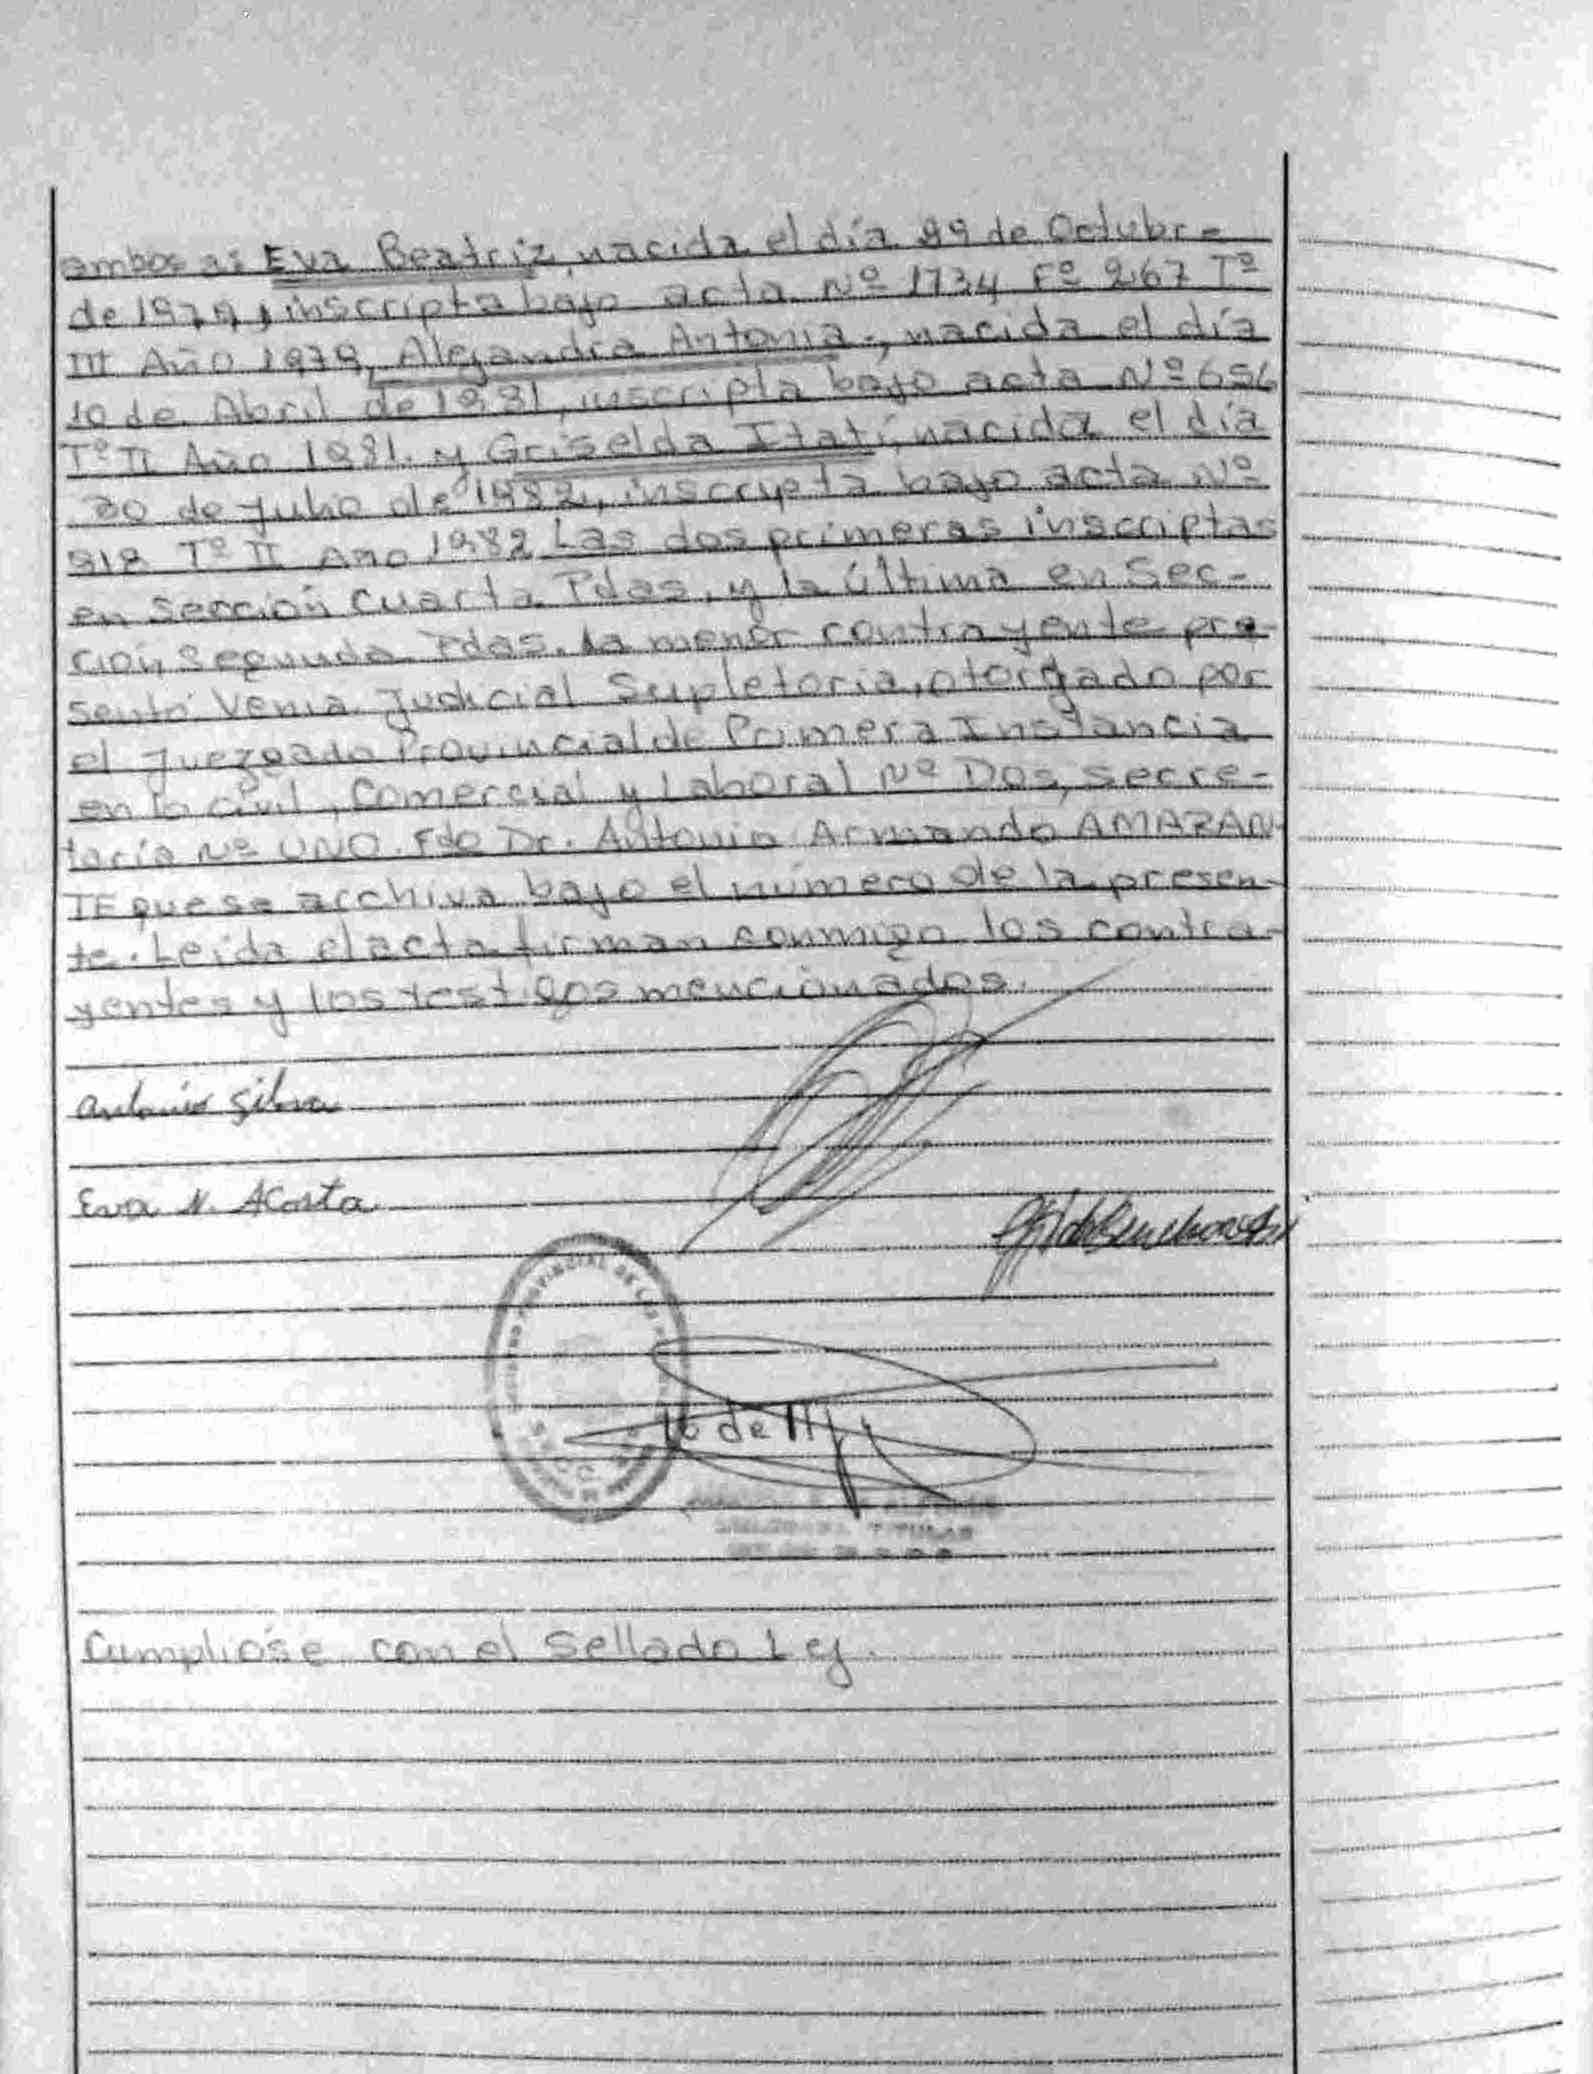 ambos a: Eva Beatriz, nacida el día 29 de Octubre
de 1979, inscripta bajo acta Nº 1734 Fº 267 Tº
III Año 1979, Alejandra Antonia, nacida el día
10 de Abril de 1981, inscripta bajo acta Nº 656
Tº II Año 1981. y Griselda Itatí, nacida el día
20 de Julio de 1982, inscripta bajo acta Nº
918 Tº II Año 1982 Las dos primeras inscriptas
en Sección Cuarta Pdas, y la última en Sec-
ción Segunda Pdas. La menor contrayente pre-
sentó Venia Judicial Supletoria, otorgado por
el Juezgado Provincial de Primera Instancia
en lo civil, Comercial y Laboral Nº Dos, secre-
taría Nº UNO. Fdo Dr. Antonio Armando AMARAN
TE que se archiva bajo el número de la presen-
te. Leída el acta firman conmigo los contra-
yentes y los testigos mencionados.
Antonio Silva
Eva N. Acosta
PROVINCIAL DE LAS
16 de
TITULAR
Cumplióse con el Sellado Ley.